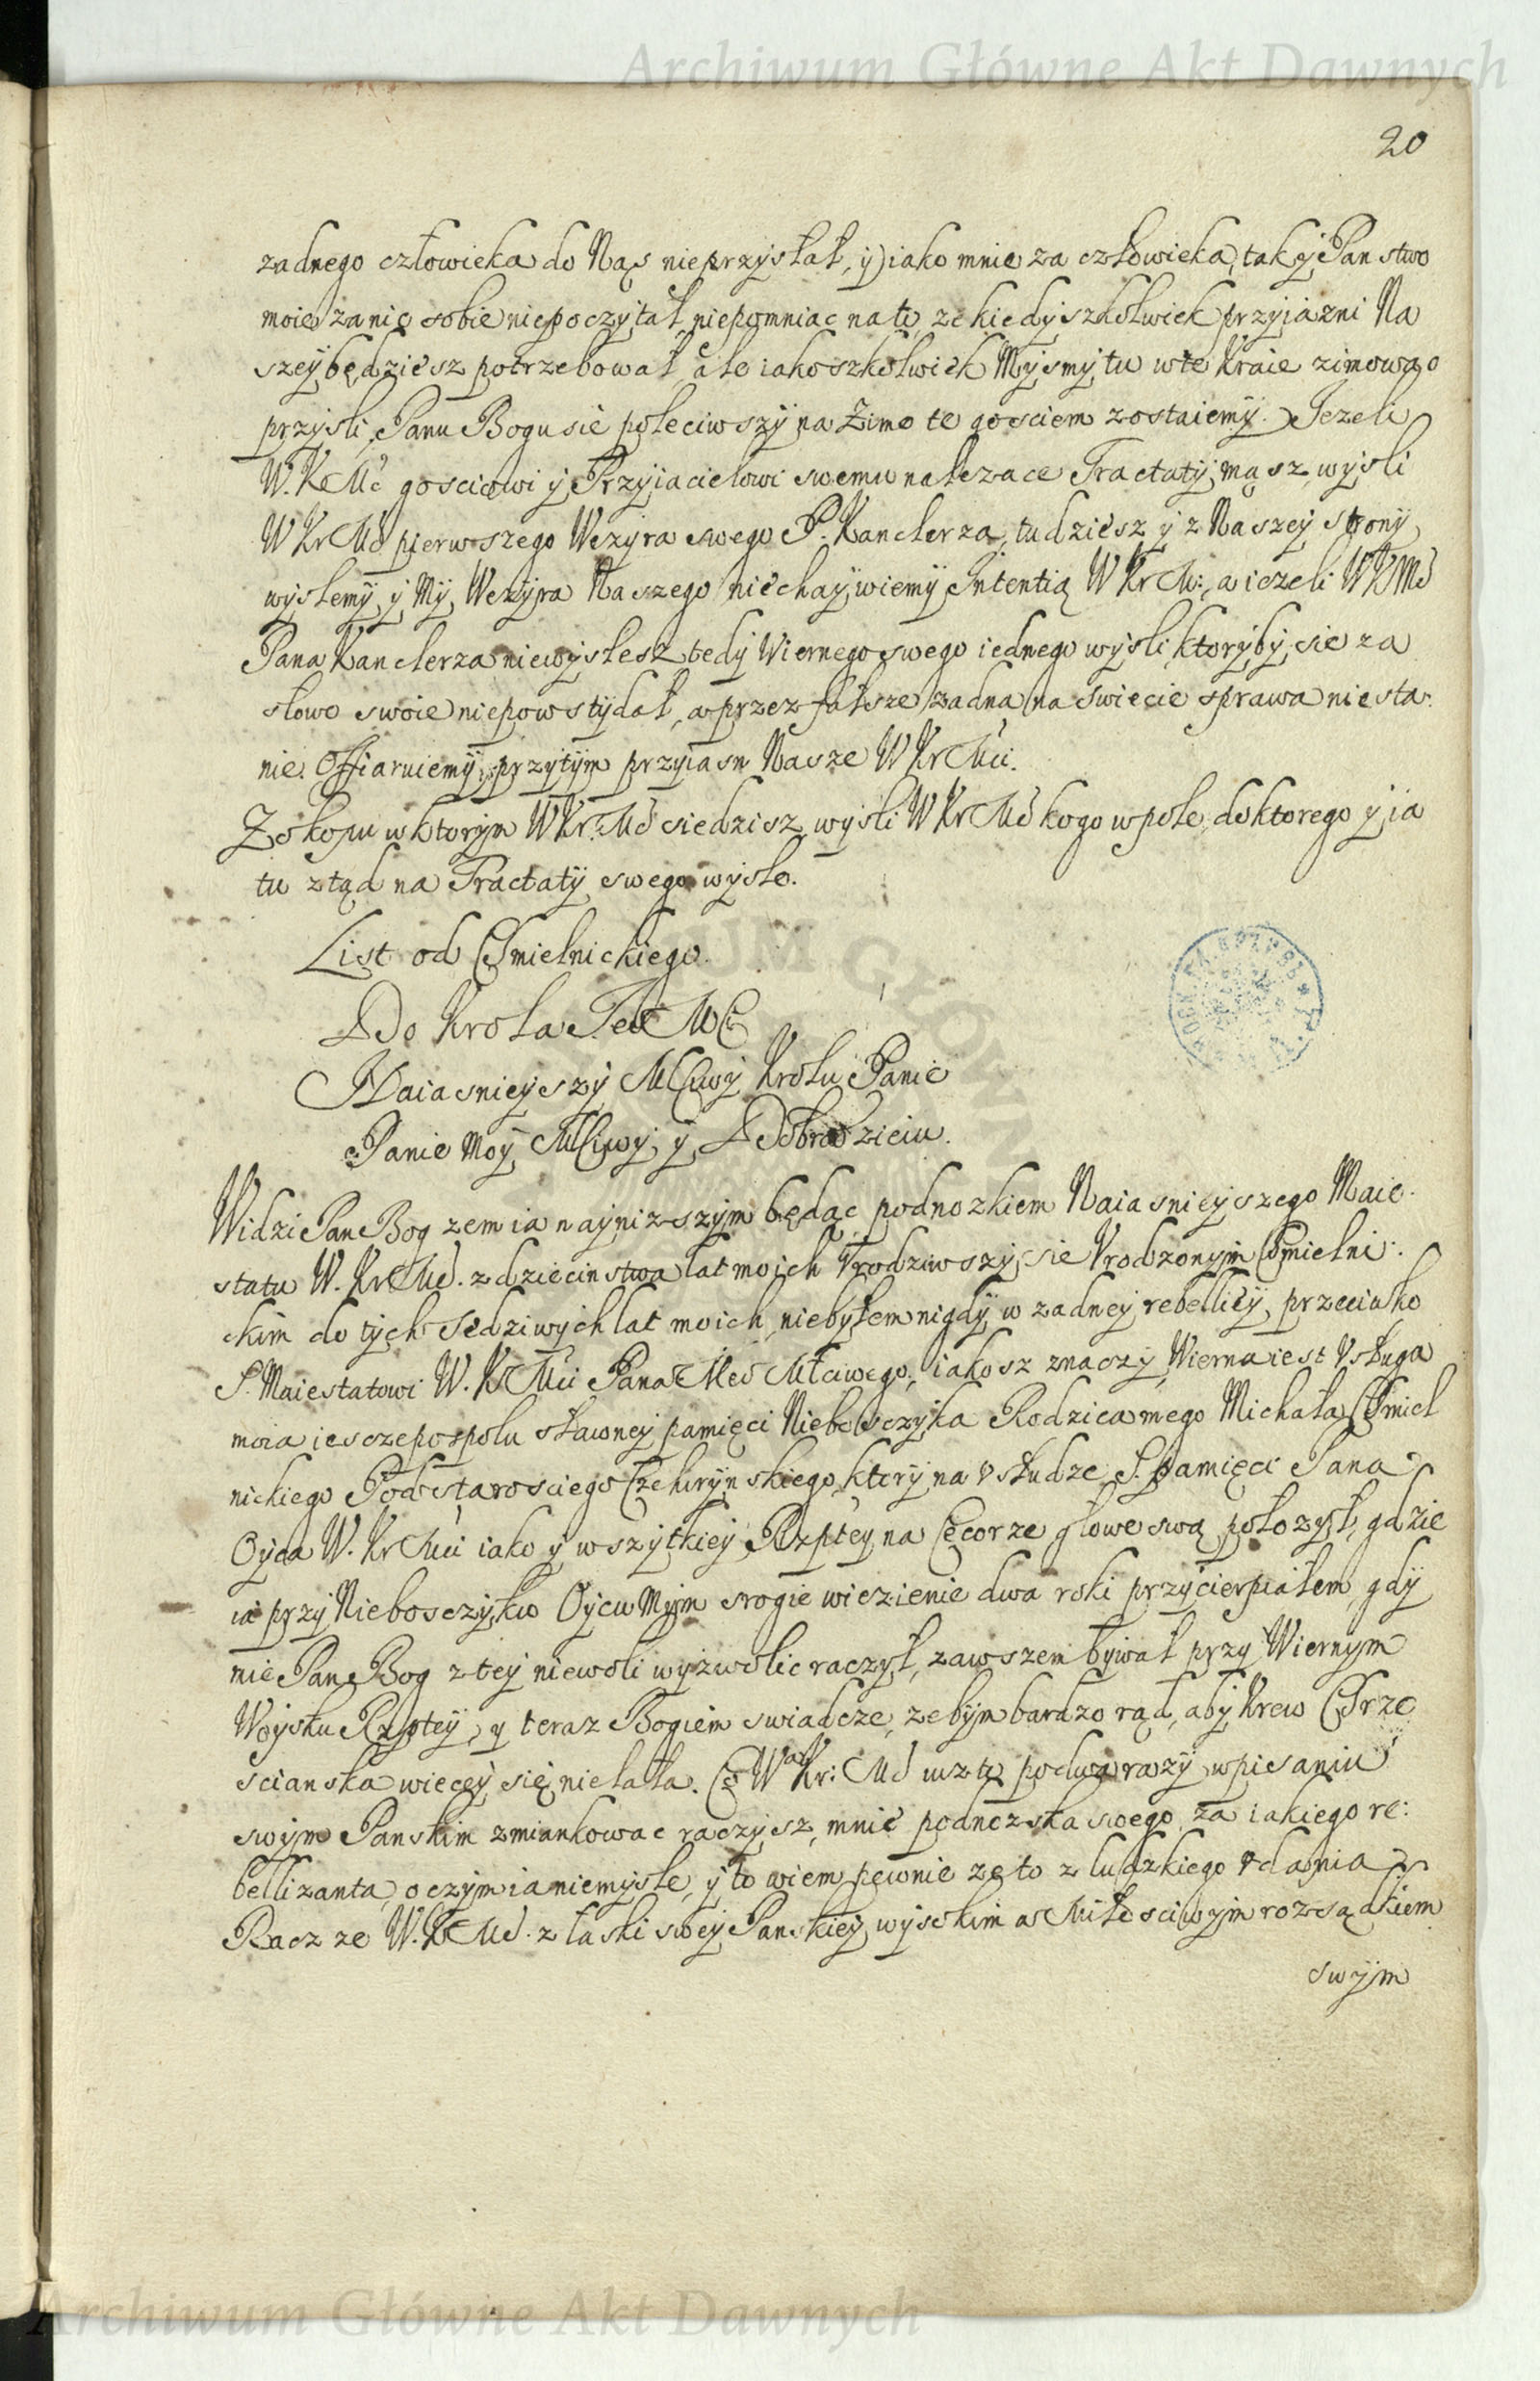 Archiwum Główne Akt Dawnych
20
zadnego człowieka do Nas nieprzysłał, y iako mnie za człowieka, tak y Panstwo
moie za nic sobie niepoczytał, niepomniac na to ze kiedyszkolwiek przyiazni Na
szey będziesz potrzebował, ale iakoszkolwiek Mysmy tu w te kraie zimowego
przysli, Panu Bogu sie poleciwszy na Zime te gosciem zostaiemy. Jezeli
W. K Mc gosciowi y Przyiacielowi swemu nalezace Tractaty masz, wysli
W Kr Mc pierwszego Wezyra swego P. Kanclerza, tudziesz y z Naszey strony
wyslemy y My Wezyra Naszego niechay wiemy Intentią W Kr M: a iezeli W K Mc
Pana Kanclerza niewyslesz tedy Wiernego swego iednego wysli ktoryby sie za
słowo swoie niepowstydał, a przez fałsze zadna na swiecie sprawa niesta
nie. Offiaruiemy przytym przyiasn Nasze W Kr Mci.
Z okopu w ktorym W Kr. Mc siedzisz, wysli W Kr Mc kogo w pole, do ktorego y ia
tu ztąd na Tractaty swego wysle.
List od Chmielnickiego.
Do Krola Je M
Naiasnieyszy MCiwy Krolu Panie
Panie Moy MCiwy y Dobrodzieiu.
Widzi Pan Bog zem ia naynizszym będąc podnozkiem Naiasnieyszego Maie
statu W. Kr Mc. z dziecinstwa lat moich Vrodziwszy sie Vrodzonym Chmielni:
ckim do tych Sedziwych lat moich, niebyłem nigdy w zadney rebelliey, przeciwko
S. Maiestatowi W. K Mci Pana Me Młciwego, iakosz znaczy Wierna iest Vsługa
moia iesczepospolu sławney pamięci Nieboszczyka Rodzica mego Michała Chmiel
nickiego Podstarosciego Czehrynskiego, ktory na vsłudze S. pamięci Pana
Oyca W. Kr Mci iako y wszytkiey Rzptey na Cecorze głowe swą położył, gdzie
ia przy Nieboszczyku Oycu Mym srogie wiezienie dwa roki przycierpiałem, gdy
mie Pan Bog z tey niewoli wyzwolic raczył, zawszem bywał przy Wiernym
Woysku Rzptey, y teraz Bogiem swiadcze, zebym bardzo rąd, aby krew Chrze
scianska wiecey się nielała. Co W Kr: Mc po dwa razy w pisaniu
swym Panskim zmiankowac raczysz, mnie podnozka swego, za iakiego re:
bellizanta, o czym ia niemysle, y to wiem pewnie ze to z ludzkiego vdania
Racz ze W. K Mc. z łaski swey Panskiey wysokim a Miłosciwym rozsądkiem
swym
Archiwum Główne Akt Dawnych